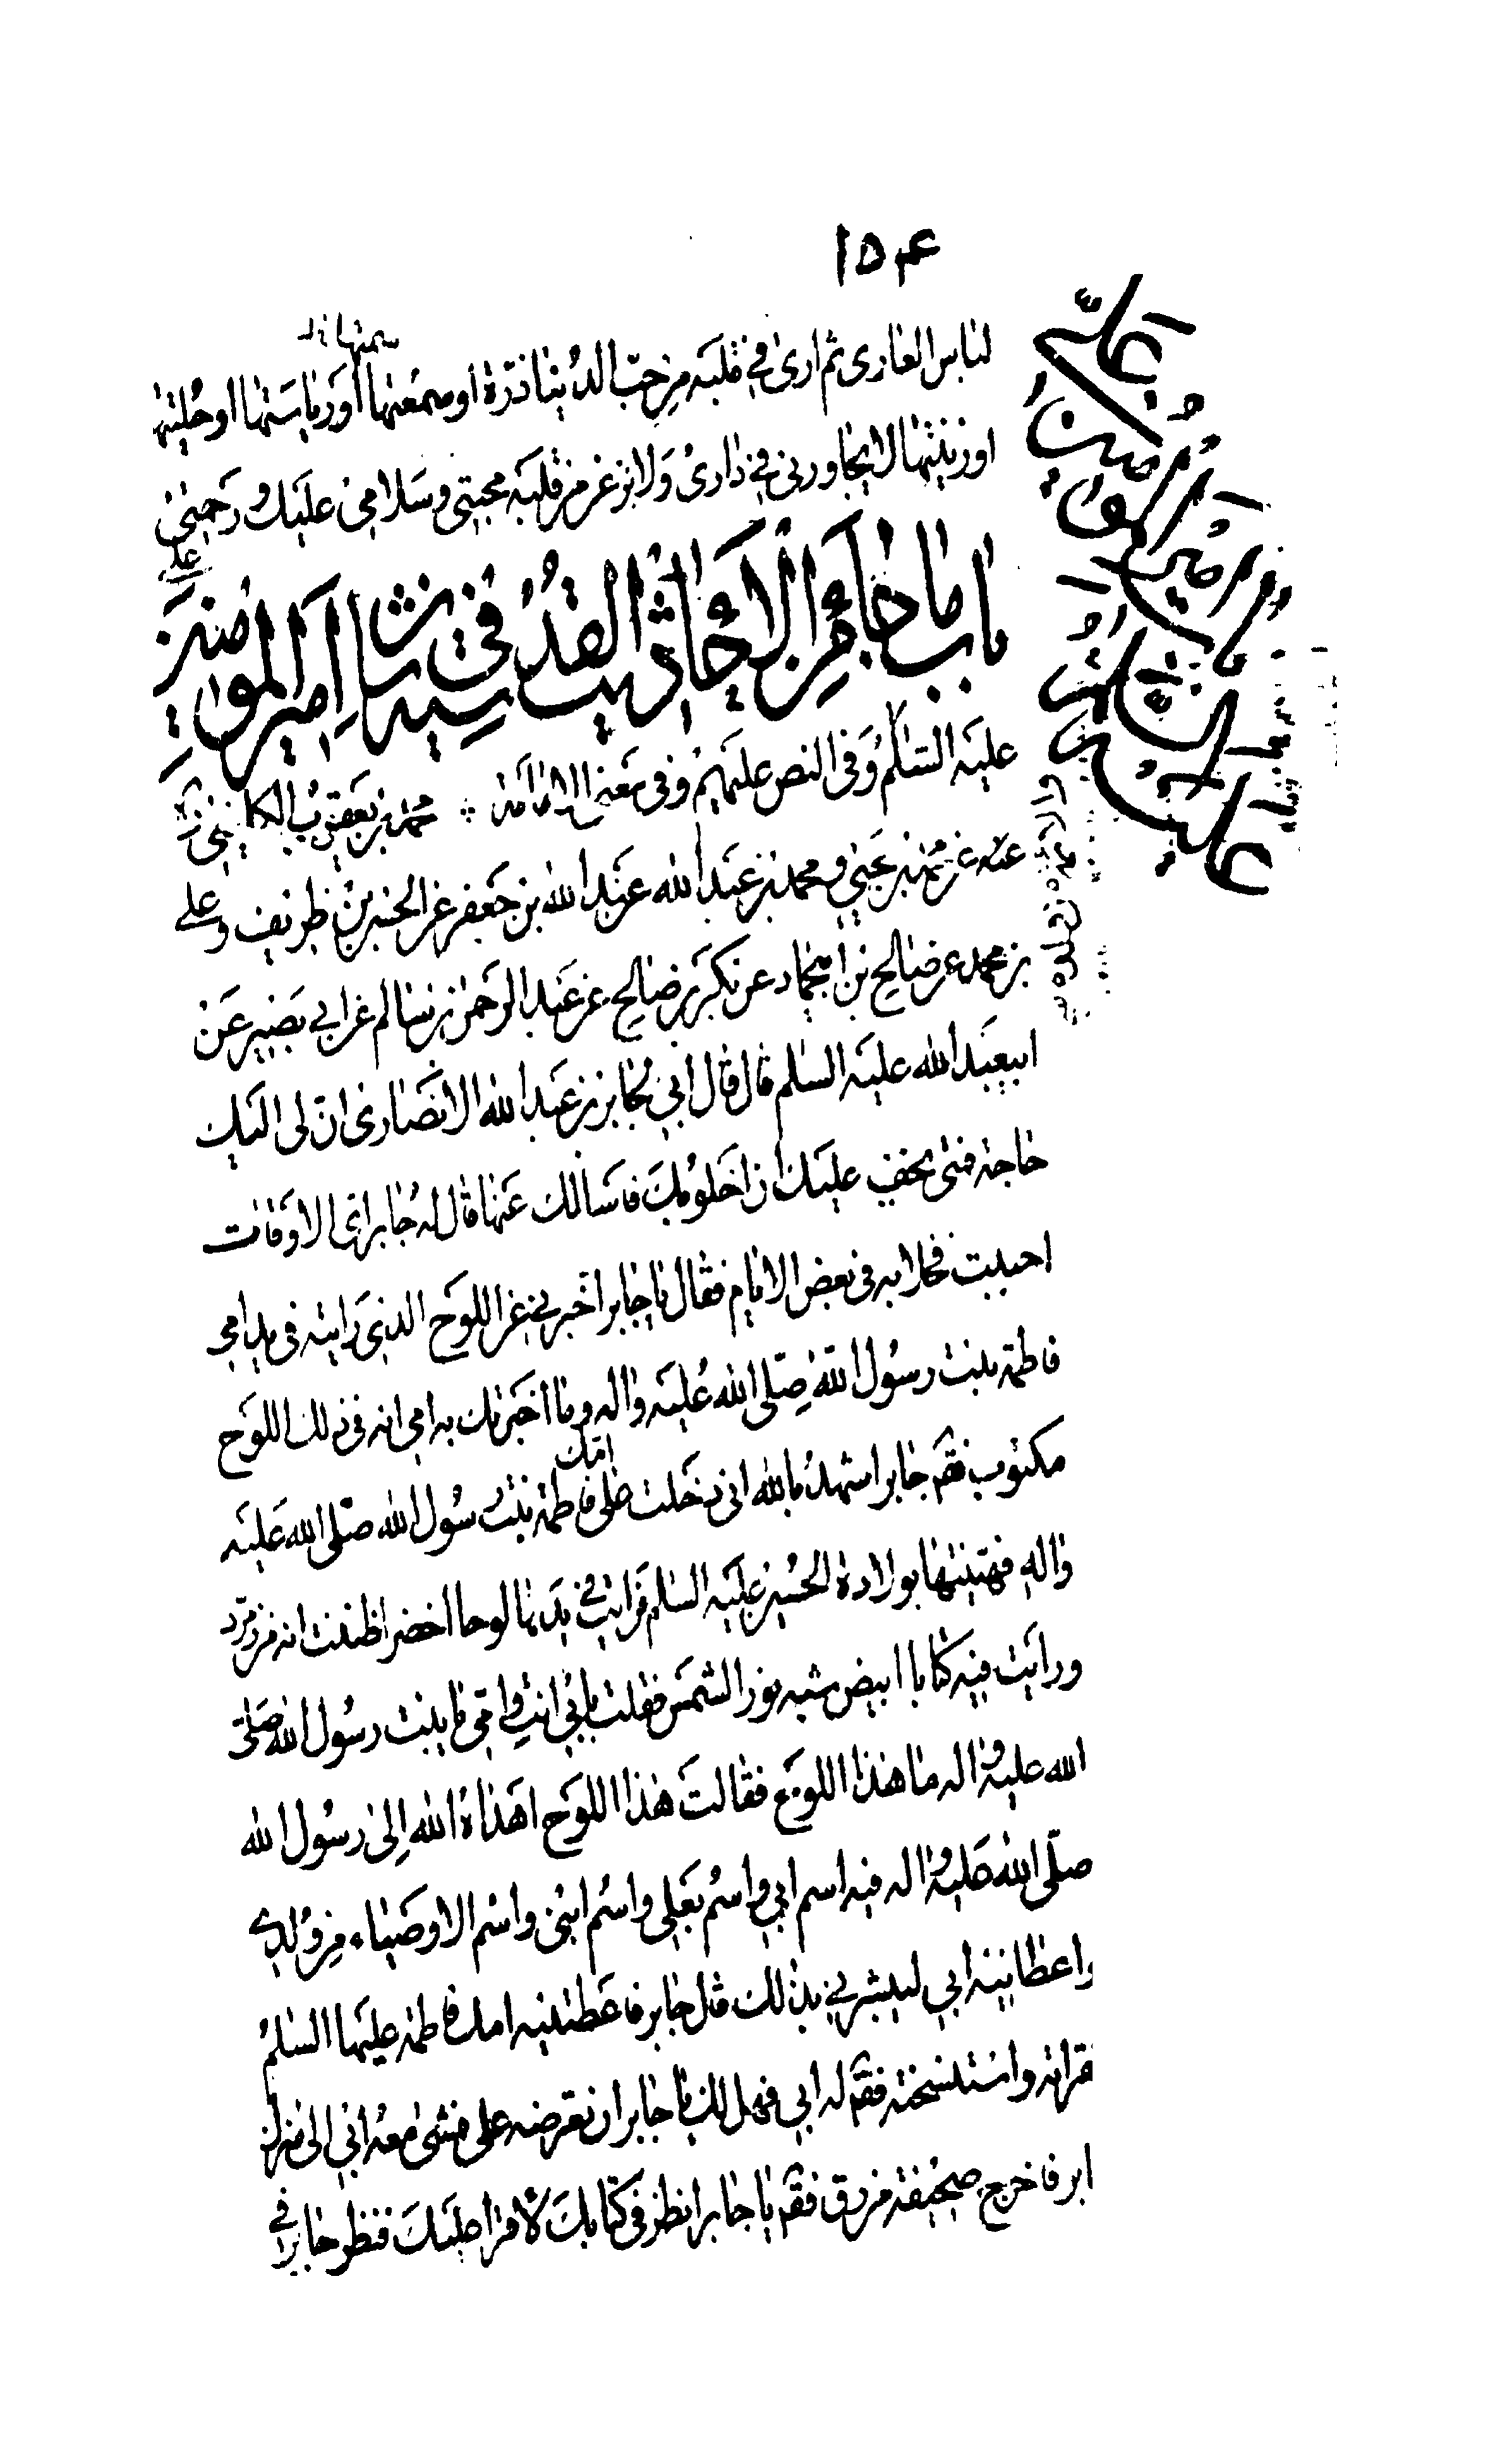 ۱۵۴
سمتها
لباس العارى ثم ارى فى قلبه من حب الدنيا ذرة او سمعتها او رياستها او حليتها
او زينتها لا يجاورنى فى دارى ولانزعن من قلبه محبتى وسلامى عليك ورحمتى
باب ما جاء من الاحاديث القدسية فى شان امير المومنين
على
عليه السلام وفى النص عليهم وفى معنى الامامة محمد بن يعقوب الكلينى
عن محمد بن يحيى ومحمد بن عبد الله عن عبد الله بن جعفر عن الحسن بن ظريف وعلى
بن محمد عن صالح بن ابى حماد عن بكر بن صالح عن عبد الرحمن بن سالم عن ابى بصير عن
ابيعبد الله عليه السلم قال قال ابى لجابر بن عبد الله الانصارى ان لى اليك
حاجة فمتى يخف عليك ان اخلو بك فاسالك عنها قال له جابر اى الاوقات
احببت فخلا به فى بعض الايام فقال يا جابر اخبرنى عن اللوح الذى رايته فى يد امى
فاطمة بنت رسول الله صلى الله عليه واله وما اخبرتك به امى انه فى ذلك اللوح
مكتوب فقم جابر اشهد بالله انى دخلت على امك فاطمة بنت رسول الله صلى الله عليه
واله فهنيتها بولادة الحسين عليه السلم فرايت فى يديها لوحا اخضر ظننت انه من زمرد
ورايت فيه كتابا ابيض شبه نور الشمس فقلت بابى انت وامى يا بنت رسول الله صلى
الله عليه واله ما هذا اللوح فقالت هذا اللوح اهداه الله الى رسول الله
صلى الله عليه واله فيه اسم ابى واسم بعلى واسم ابنى واسم الاوصياء من ولدى
واعطانيه ابى ليبشرنى بذلك قال جابر فاعطتنيه امك فاطمة عليها السلم
فقراته واستنسخته فقم له ابى فهل لك يا جابر ان تعرضه على فمشى معه ابى الى منزل
ابر فاخرج صحيفة من رق فقم يا جابر انظر فى كتابك لاقرا عليك فنظر جابر فى